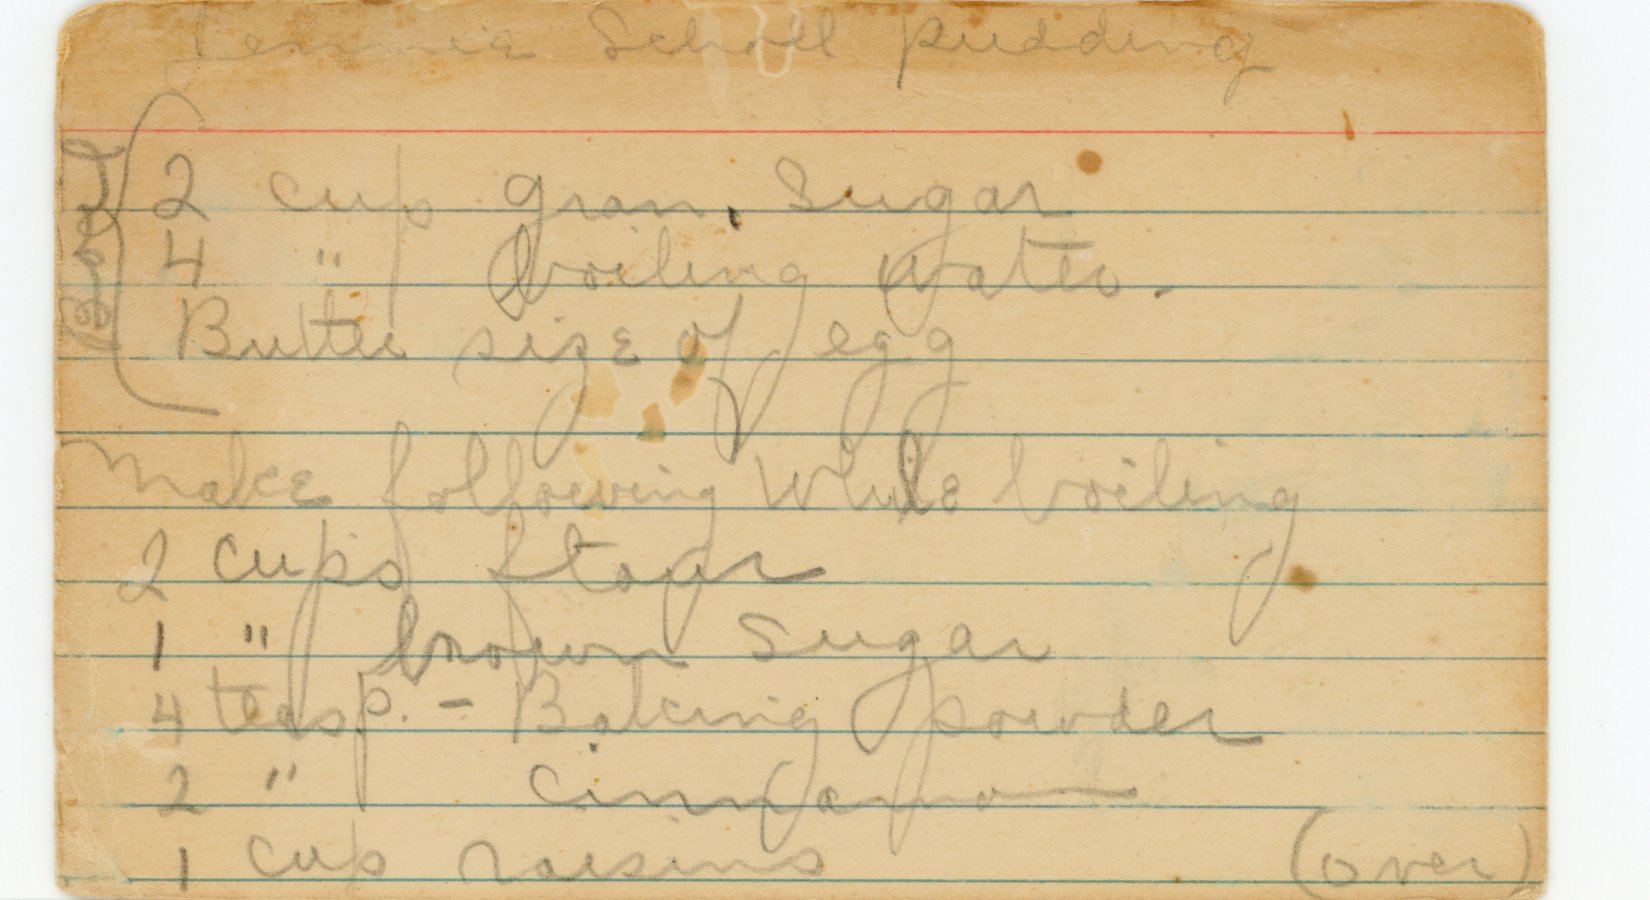 Jennie Scholl pudding
Boil
2 cup gran. sugar
4 " boiling water.
Butter size of egg
Make following while boiling
2 cups flour
1 " brown sugar
4 teasp. - Baking powder
2 " cinnamon
1 cup raisins
(over)